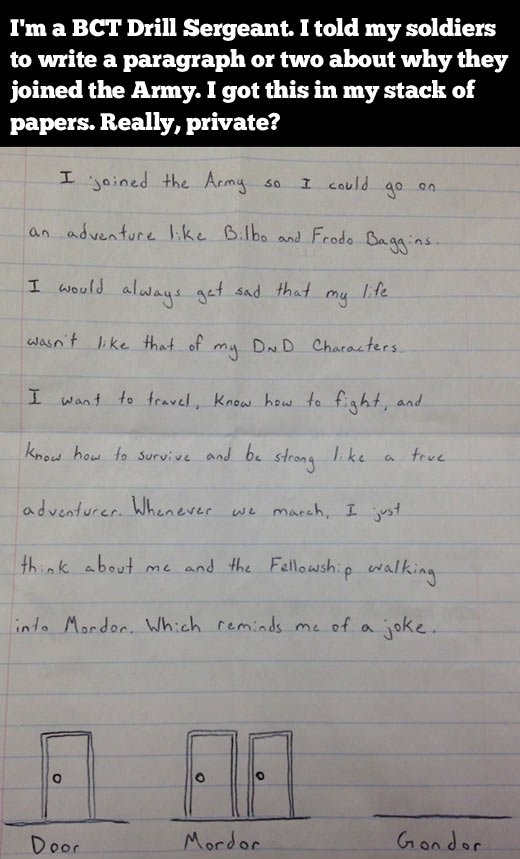 I'm a BCT Drill Sergeant. I told my soldiers
to write a paragraph or two about why they
joined the Army. I got this in my stack of
papers. Really, private?
I joined the Army so I could go on
an adventure like Bilbo and Frodo Baggins.
I would always get sad that my life
wasn't like that of my DnD Characters.
I want to travel, know how to fight, and
know how to survive and be strong like a true
adventurer. Whenever we march, I just
think about me and the Fellowship walking
into Mordor. Which reminds me of a joke.
Door Mordor Gondor